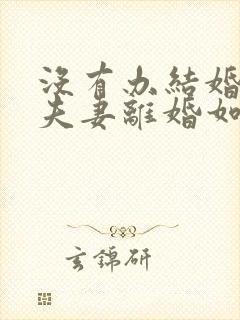 没有办結婚
夫妻離婚如
玄錦研